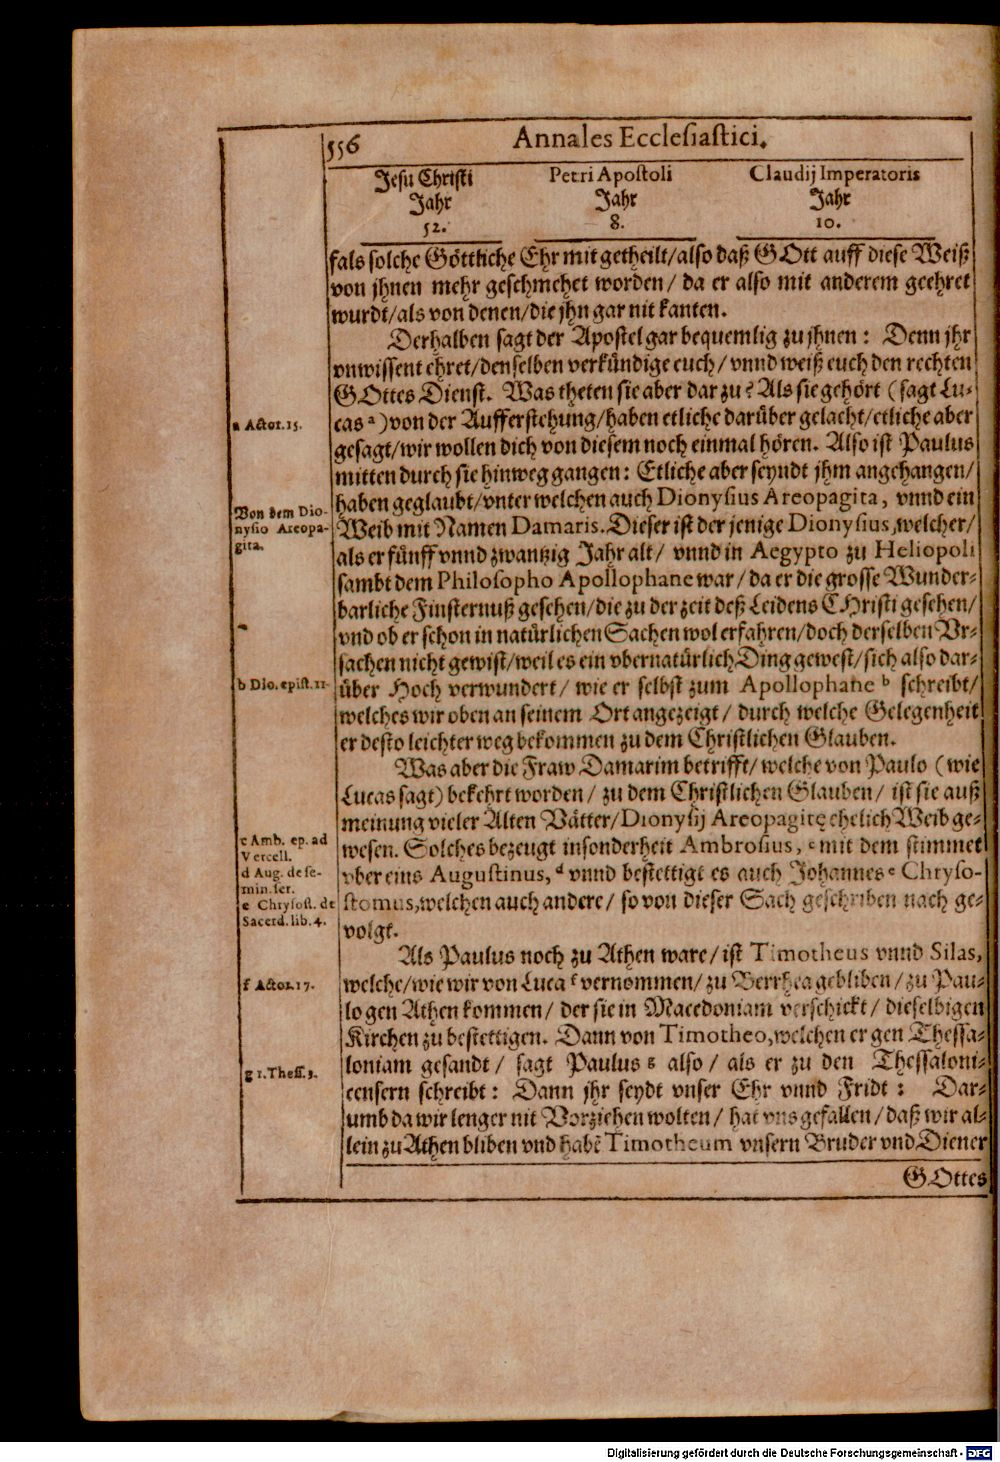 556
Annales Ecclesiastici.
Jesu Christi
Jahr
52.
Petri Apostoli
Jahr
8.
Claudij Imperatoris
Jahr
10.
fals solche Göttliche Ehr mit getheilt/also daß GOtt auff diese Weiß
von jhnen mehr geschmehet worden/ da er also mit anderem geehret
wurdt/als von denen/die jhn gar nit kanten.
Derhalben sagt der Apostel gar bequemlig zu jhnen: Denn jhr
vnwissent ehret/denselben verkündige euch/ vnnd weiß euch den rechten
GOttes Dienst. Was theten sie aber dar zu? Als sie gehört (sagt Lu-
cas a) von der Aufferstehung/haben etliche darüber gelacht/etliche aber
gesagt/wir wollen dich von diesem noch einmal hören. Also ist Paulus
mitten durch sie hinweg gangen: Etliche aber seyndt jhm angehangen/
haben geglaubt/vnter welchen auch Dionysius Areopagita, vnnd ein
Weib mit Namen Damaris. Dieser ist der jenige Dionysius, welcher/
als er fünff vnnd zwantzig Jahr alt/ vnnd in Aegypto zu Heliopoli
sambt dem Philosopho Apollophane war/da er die grosse Wunder-
barliche Finsternuß gesehen/die zu der zeit deß Leidens CHristi gesehen/
vnd ob er schon in natürlichen Sachen wol erfahren/doch derselben Vr-
sachen nicht gewist/weil es ein vbernatürlich Ding gewest/sich also dar-
über Hoch verwundert/ wie er selbst zum Apollophane b schreibt/
welches wir oben an seinem Ort angezeigt/ durch welche Gelegenheit
er desto leichter weg bekommen zu dem Christlichen Glauben.
Was aber die Fraw Damarim betrifft/welche von Paulo (wie
Lucas sagt) bekehrt worden/ zu dem Christlichen Glauben/ ist sie auß
meinung vieler Alten Vätter/Dionysij Areopagitę ehelich Weib ge-
wesen. Solches bezeugt insonderheit Ambrosius, c mit dem stimmet
vber eins Augustinus, d vnnd bestettigt es auch Johannes e Chryso-
stomus, welchen auch andere/ so von dieser Sach geschriben nach ge-
volgt.
Als Paulus noch zu Athen ware/ist Timotheus vnnd Silas,
welche/wie wir von Luca f vernommen/zu Berrhea gebliben/zu Pau-
lo gen Athen kommen/ der sie in Macedoniam verschickt/ dieselbigen
Kirchen zu bestettigen. Dann von Timotheo, welchen er gen Thessa-
loniam gesandt/ sagt Paulus g also/ als er zu den Thessaloni-
censern schreibt: Dann jhr seydt vnser Ehr vnnd Fridt: Dar-
umb da wir lenger nit Vorziehen wolten/ hat vns gefallen/daß wir al-
lein zu Athen bliben vnd habē Timotheum vnsern Bruder vnd Diener
GOttes
a Actor. 15.
Von dem Dio-
nysio Areopa-
gita.
b Dio. epist. 11.
c Amb. ep. ad
Vercell.
d Aug. de se-
min. ser.
e Chrysost. de
Sacerd. lib. 4.
f Actor. 17.
g 1. Thess. 3.
Digitalisierung gefördert durch die Deutsche Forschungsgemeinschaft - DFG